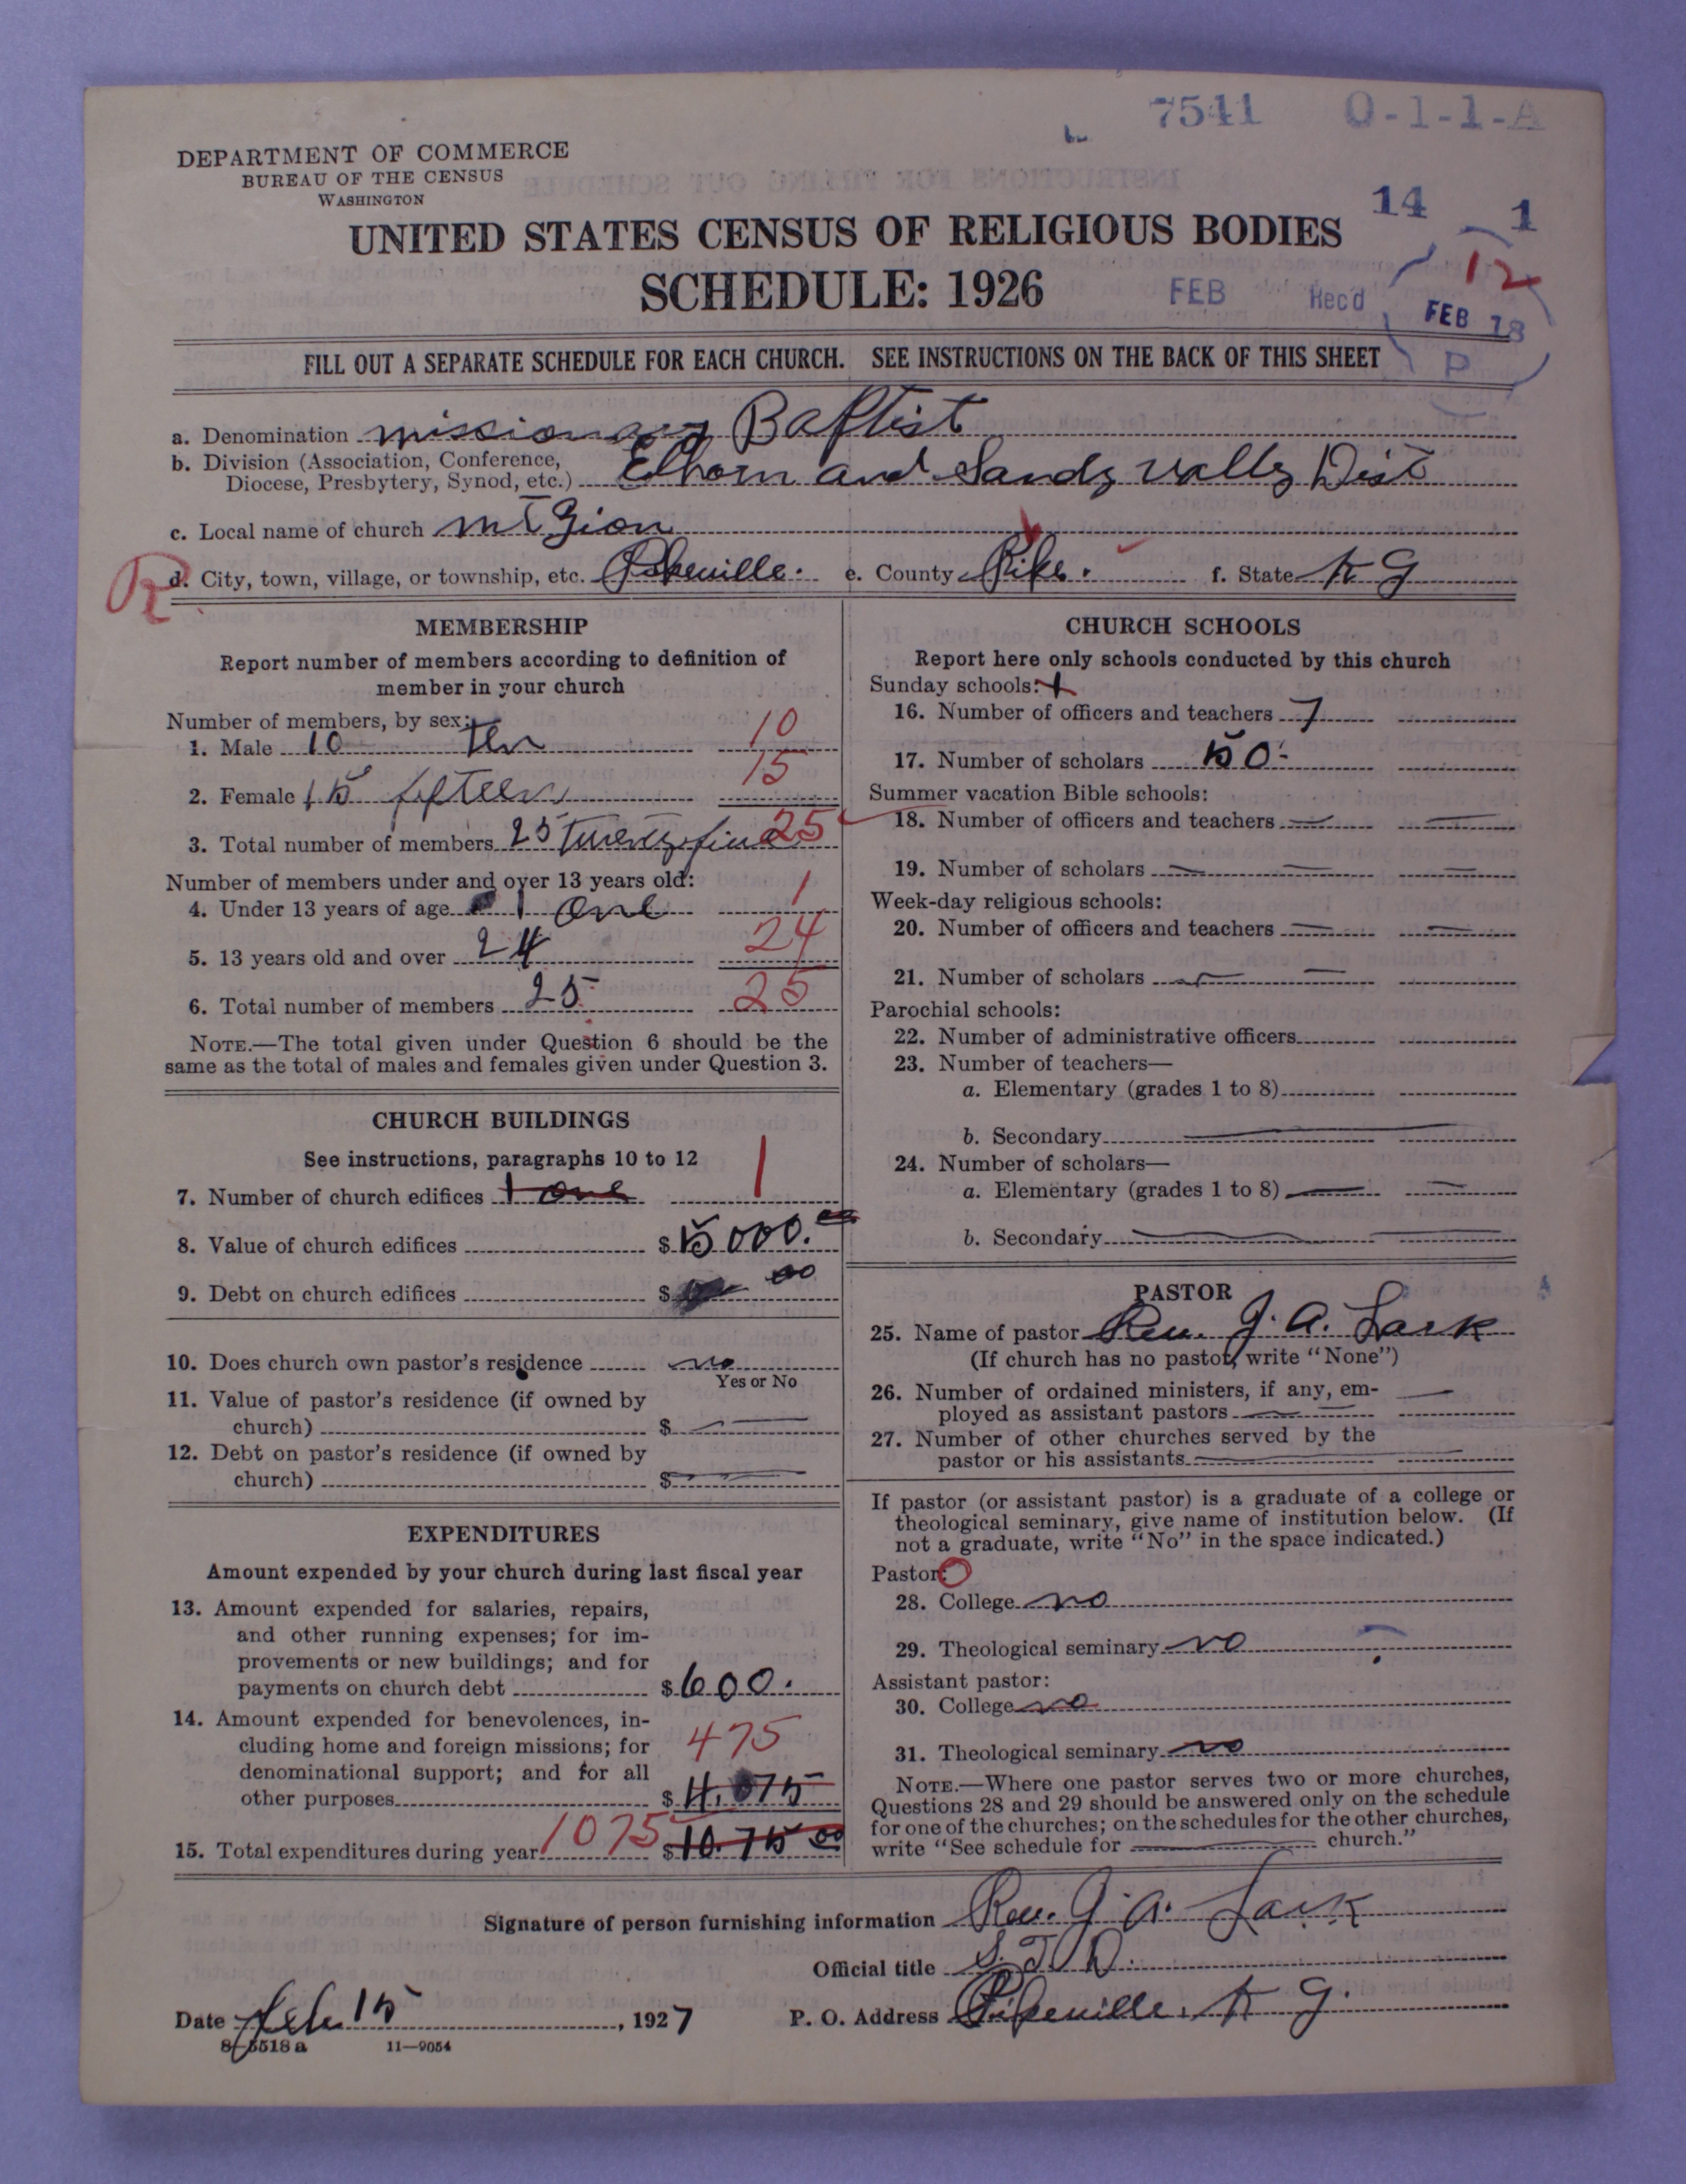 7541 O-1-1-A
DEPARTMENT OF COMMERCE
BUREAU OF THE CENSUS
WASHINGTON
14 1
UNITED STATES CENSUS OF RELIGIOUS BODIES
12
SCHEDULE: 1926
FEB Recd FEB 18
P
FILL OUT A SEPARATE SCHEDULE FOR EACH CHURCH. SEE INSTRUCTIONS ON THE BACK OF THIS SHEET
a. Denomination missionary Baptist
b. Division (Association, Conference,
Diocese, Presbytery, Synod, etc.) Elhorn and Sandy Vally Dist
c. Local name of church mt Zion
R
d. City, town, village, or township, etc. Pikeville. e. County Pike. f. State Ky
MEMBERSHIP
Report number of members according to definition of
member in your church
Number of members, by sex:
1. Male 10 ten 10
2. Female 15 fifteen 15
3. Total number of members 25 twenty five 25
Number of members under and over 13 years old:
4. Under 13 years of age 1 one 1
5. 13 years old and over 24 24
6. Total number of members 25 25
NOTE.—The total given under Question 6 should be the
same as the total of males and females given under Question 3.
CHURCH BUILDINGS
See instructions, paragraphs 10 to 12
7. Number of church edifices 1 one 1
8. Value of church edifices $ 5000.00
9. Debt on church edifices $ 00
10. Does church own pastor's residence no
Yes or No
11. Value of pastor's residence (if owned by
church) $
12. Debt on pastor's residence (if owned by
church) $
EXPENDITURES
Amount expended by your church during last fiscal year
13. Amount expended for salaries, repairs,
and other running expenses; for im-
provements or new buildings; and for
payments on church debt $ 600.
14. Amount expended for benevolences, in-
cluding home and foreign missions; for 475
denominational support; and for all
other purposes $ 4.075
15. Total expenditures during year 1075 $ 10.75 00
CHURCH SCHOOLS
Report here only schools conducted by this church
Sunday schools:
16. Number of officers and teachers 7
17. Number of scholars 50
Summer vacation Bible schools:
18. Number of officers and teachers
19. Number of scholars
Week-day religious schools:
20. Number of officers and teachers
21. Number of scholars
Parochial schools:
22. Number of administrative officers
23. Number of teachers—
a. Elementary (grades 1 to 8)
b. Secondary
24. Number of scholars—
a. Elementary (grades 1 to 8)
b. Secondary
PASTOR
25. Name of pastor Rev. J. A. Lark
(If church has no pastor, write "None")
26. Number of ordained ministers, if any, em-
ployed as assistant pastors
27. Number of other churches served by the
pastor or his assistants
If pastor (or assistant pastor) is a graduate of a college or
theological seminary, give name of institution below. (If
not a graduate, write "No" in the space indicated.)
Pastor:
28. College no
29. Theological seminary no
Assistant pastor:
30. College no
31. Theological seminary no
NOTE.—Where one pastor serves two or more churches,
Questions 28 and 29 should be answered only on the schedule
for one of the churches; on the schedules for the other churches,
write "See schedule for church."
Signature of person furnishing information Rev. J. A. Lark
Official title
Date Feb 15, 1927 P. O. Address Pikeville, Ky.
8—5518 a 11—9054